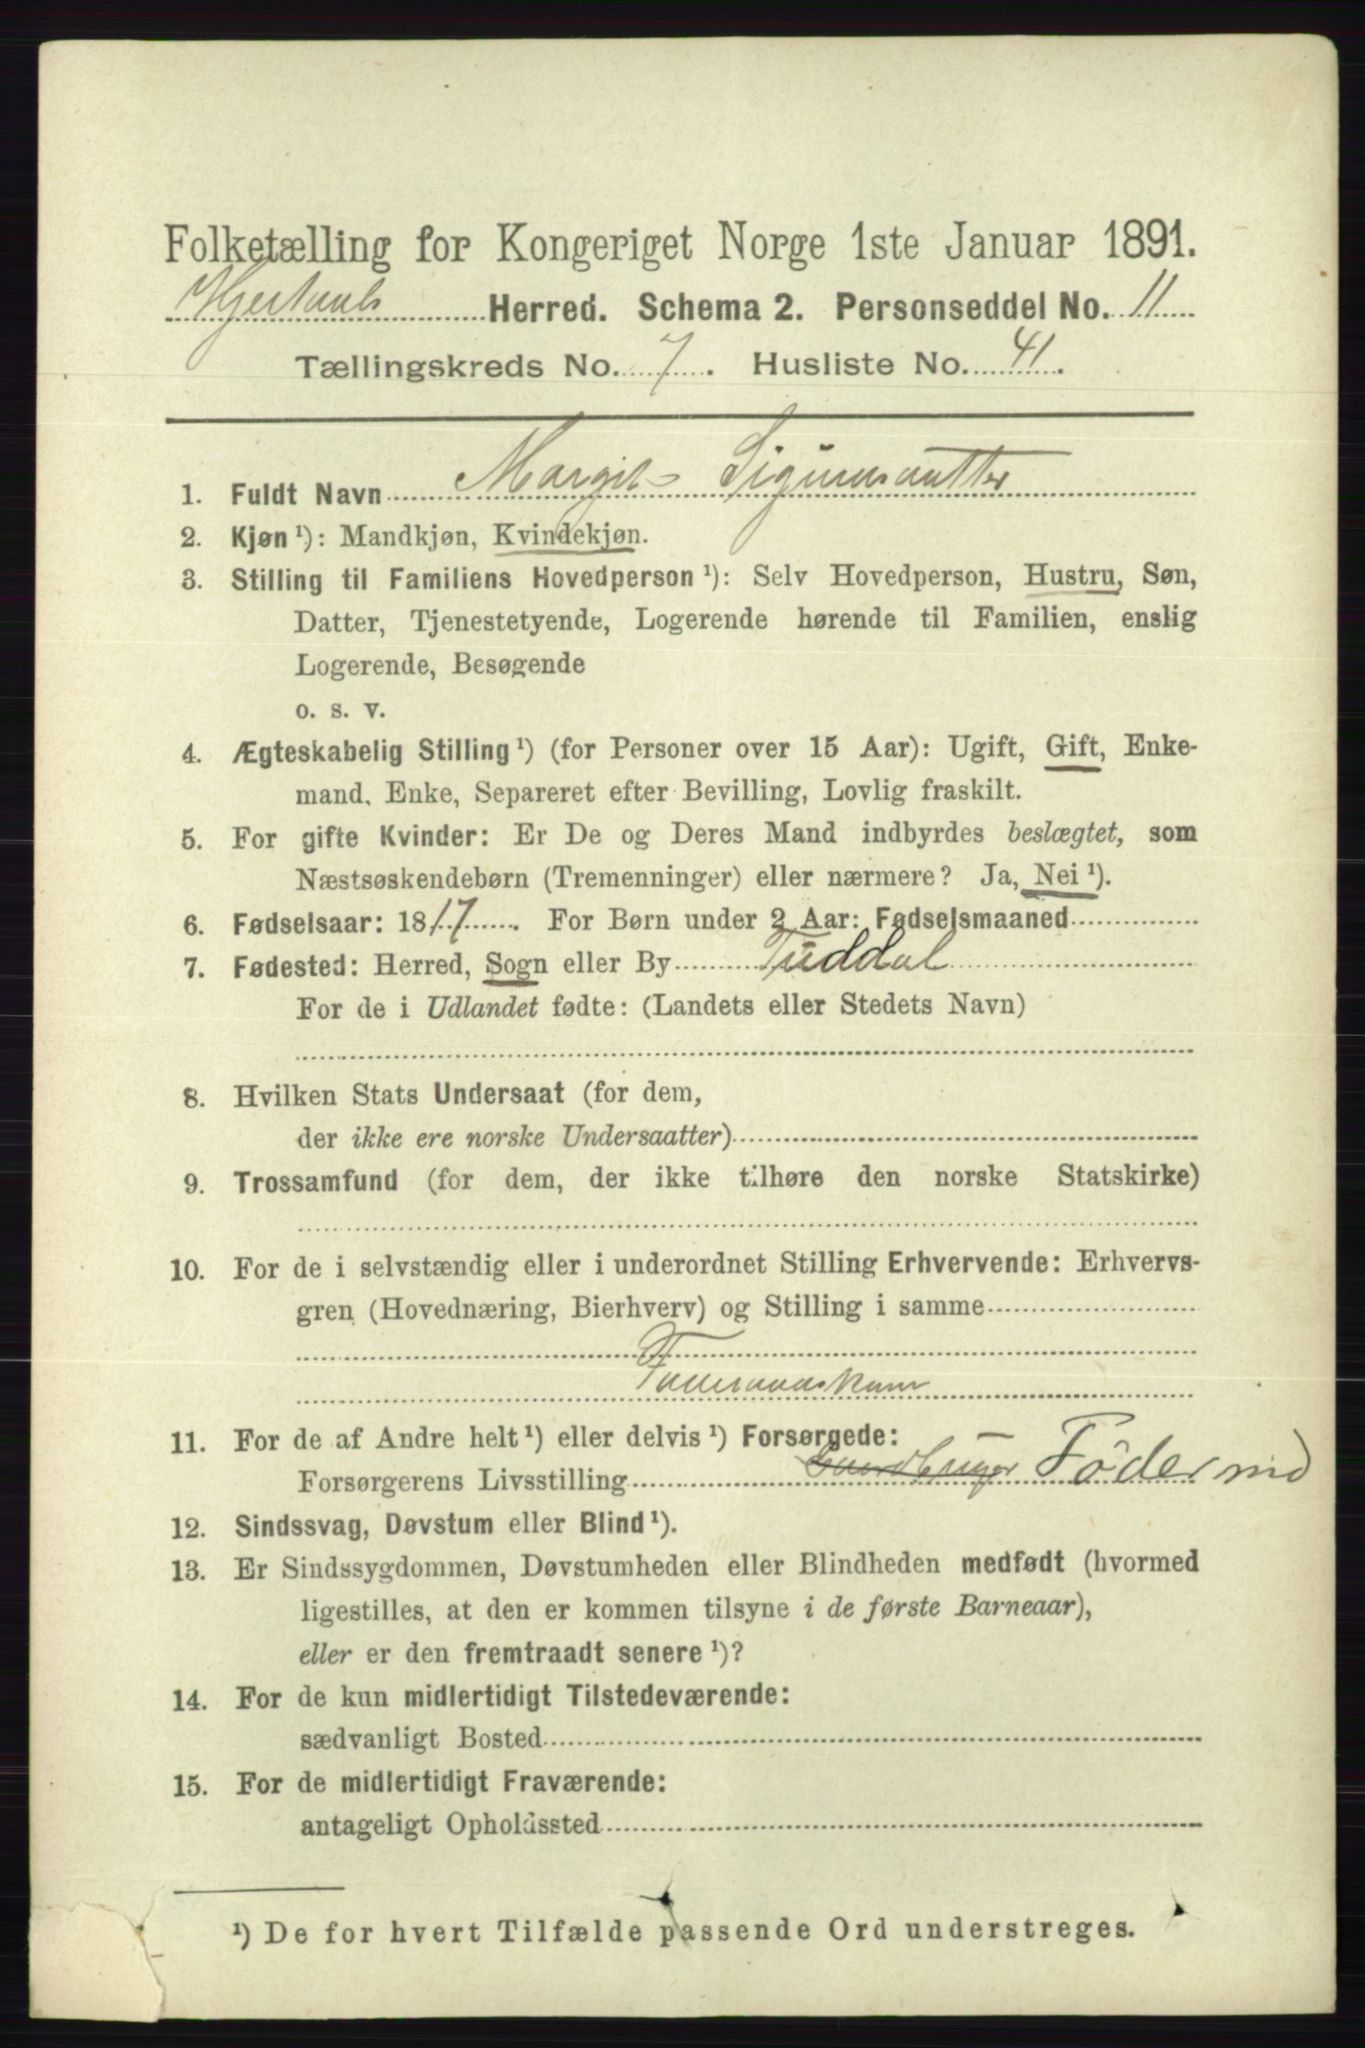 Folketælling for Kongeriget Norge 1ste Januar 1891.
Hjertdals Herred. Schema 2. Personseddel No. 11
Tællingskreds No. 7. Husliste No. 41.
1. Fuldt Navn Margit
2. Kjøn ¹): Mandkjøn, Kvindekjøn.
3. Stilling til Familiens Hovedperson ¹): Selv Hovedperson, Hustru, Søn,
Datter, Tjenestetyende, Logerende hørende til Familien, enslig
Logerende, Besøgende
o. s. v.
4. Ægteskabelig Stilling ¹) (for Personer over 15 Aar): Ugift, Gift, Enke-
mand, Enke, Separeret efter Bevilling, Lovlig fraskilt.
5. For gifte Kvinder: Er De og Deres Mand indbyrdes beslægtet, som
Næstsøskendebørn (Tremenninger) eller nærmere? Ja, Nei ¹).
6. Fødselsaar: 1817. For Børn under 2 Aar: Fødselsmaaned
7. Fødested: Herred, Sogn eller By Tuddal
For de i Udlandet fødte: (Landets eller Stedets Navn)
8. Hvilken Stats Undersaat (for dem,
der ikke ere norske Undersaatter)
9. Trossamfund (for dem, der ikke tilhøre den norske Statskirke)
10. For de i selvstændig eller i underordnet Stilling Erhvervende: Erhvervs-
gren (Hovednæring, Bierhverv) og Stilling i samme
11. For de af Andre helt ¹) eller delvis ¹) Forsørgede:
Forsørgerens Livsstilling Gaardbruger Föder
12. Sindssvag, Døvstum eller Blind ¹).
13. Er Sindssygdommen, Døvstumheden eller Blindheden medfødt (hvormed
ligestilles, at den er kommen tilsyne i de første Barneaar),
eller er den fremtraadt senere ¹)?
14. For de kun midlertidigt Tilstedeværende:
sædvanligt Bosted
15. For de midlertidigt Fraværende:
antageligt Opholdssted
¹) De for hvert Tilfælde passende Ord understreges.